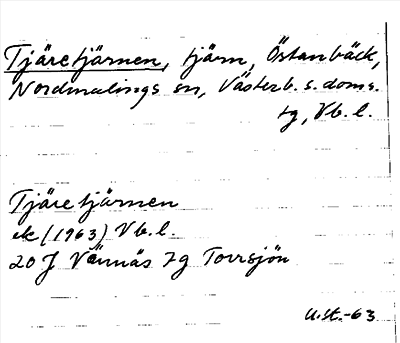 Tjäretjärnen, tjärn, Östanbäck,
Nordmalings sn, Västerb. s. doms.
tg, Vb. l.
Tjäretjärnen
ek (1963) Vb. l.
20 J Vännäs 7g Torrsjön
U.st.-63